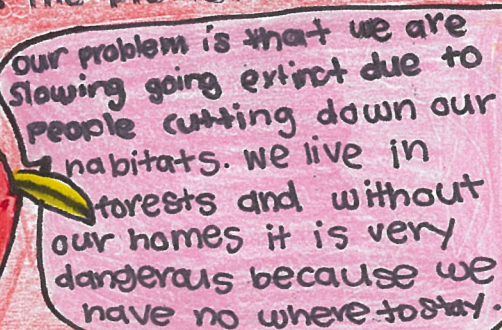 our problem is that we are
slowing going extinct due to
people cutting down our
habitats. We live in
forests and without
our homes it is very
dangerous because we
have no where to stay